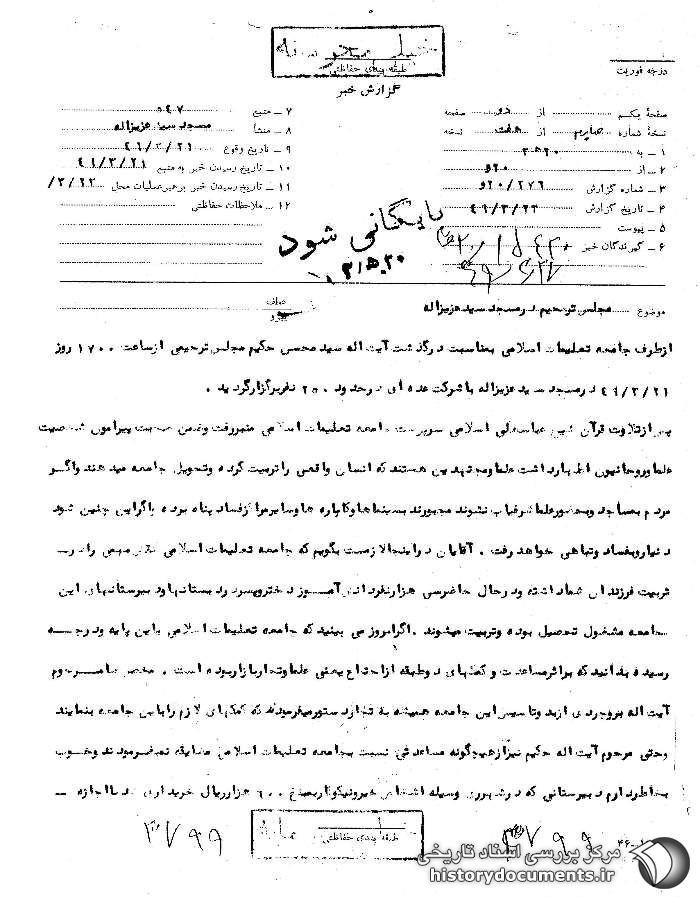 خیلی محرمانه
طبقه بندی حفاظتی
درجه فوریت
گزارش خبر
صفحهٔ یکم از دو صفحه
نسخهٔ شماره چهارم از هفت نسخه
۱ ــ به ۳۲۰
۲ ــ از ۲۰و
۳ ــ شماره گزارش ۲۰و/۲۷۶
۴ ــ تاریخ گزارش ۴۹/۳/۲۳
۵ ــ پیوست
۶ ــ گیرندگان خبر
۷ ــ منبع ۵۴۷
۸ ــ منشأ مسجد سید عزیزاله
۹ ــ تاریخ وقوع ۴۹/۳/۲۱
۱۰ ــ تاریخ رسیدن خبر به منبع ۴۹/۳/۲۱
۱۱ ــ تاریخ رسیدن خبر برهبر عملیات محل /۳/۲۲
۱۲ ــ ملاحظات حفاظتی
بایگانی شود
موضوع مجلس ترحیم در مسجد سید عزیزاله
ازطرف جامعه تعلیمات اسلامی بمناسبت درگذشت آیت اله سید محسن حکیم مجلس ترحیمی از ساعت ۱۷۰۰ روز
۴۹/۳/۲۱ در مسجد سید عزیزاله با شرکت عده ای در حدود ۲۵۰ نفر برگزار گردید .
پس از تلاوت قرآن شیخ عباسعلی اسلامی سرپرست جامعه تعلیمات اسلامی منبر رفت و ضمن صحبت پیرامون شخصیت
علما و روحانیون اظهار داشت علما و مجتهدین هستند که انسان واقعی را تربیت کرده و تحویل جامعه میدهند و اگر
مردم بمساجد و بحضور علما شرفیاب نشوند مجبورند بسینماها و کاباره ها و سایر مراکز فساد پناه برده و اگر این چنین شود
دنیا رو بفساد و تباهی خواهد رفت . آقایان در اینجا لازمست بگویم که جامعه تعلیمات اسلامی نقش مهمی را در
تربیت فرزندان شما داشته و در حال حاضر سی هزار نفر دانش آموز دختر و پسر در دبستانها و دبیرستانهای این
جامعه مشغول تحصیل بوده و تربیت میشوند . اگر امروز می بینید که جامعه تعلیمات اسلامی باین پایه و درجه
رسیده بدانید که بر اثر مساعدت و کمکهای دو طبقه از اجتماع یعنی علما و تجار بازار بوده است . مخصوصا مرحوم
آیت اله بروجردی از بدو تاسیس این جامعه همیشه به تجار دستور میفرمودند که کمکهای لازم را باین جامعه بنمایند
و حتی مرحوم آیت اله حکیم نیز از هیچگونه مساعدتی نسبت بجامعه تعلیمات اسلامی مضایقه نمیفرمودند و خوب
بخاطر دارم دبیرستانی که در شهر ری وسیله اشخاص خیر و نیکوکار بمبلغ ۶۰۰ هزار ریال خریداری شد با اجازه ــ
طبقه بندی حفاظتی
۳۷۹۹
۳۷۹۹
مرکز بررسی اسناد تاریخی
historydocuments.ir